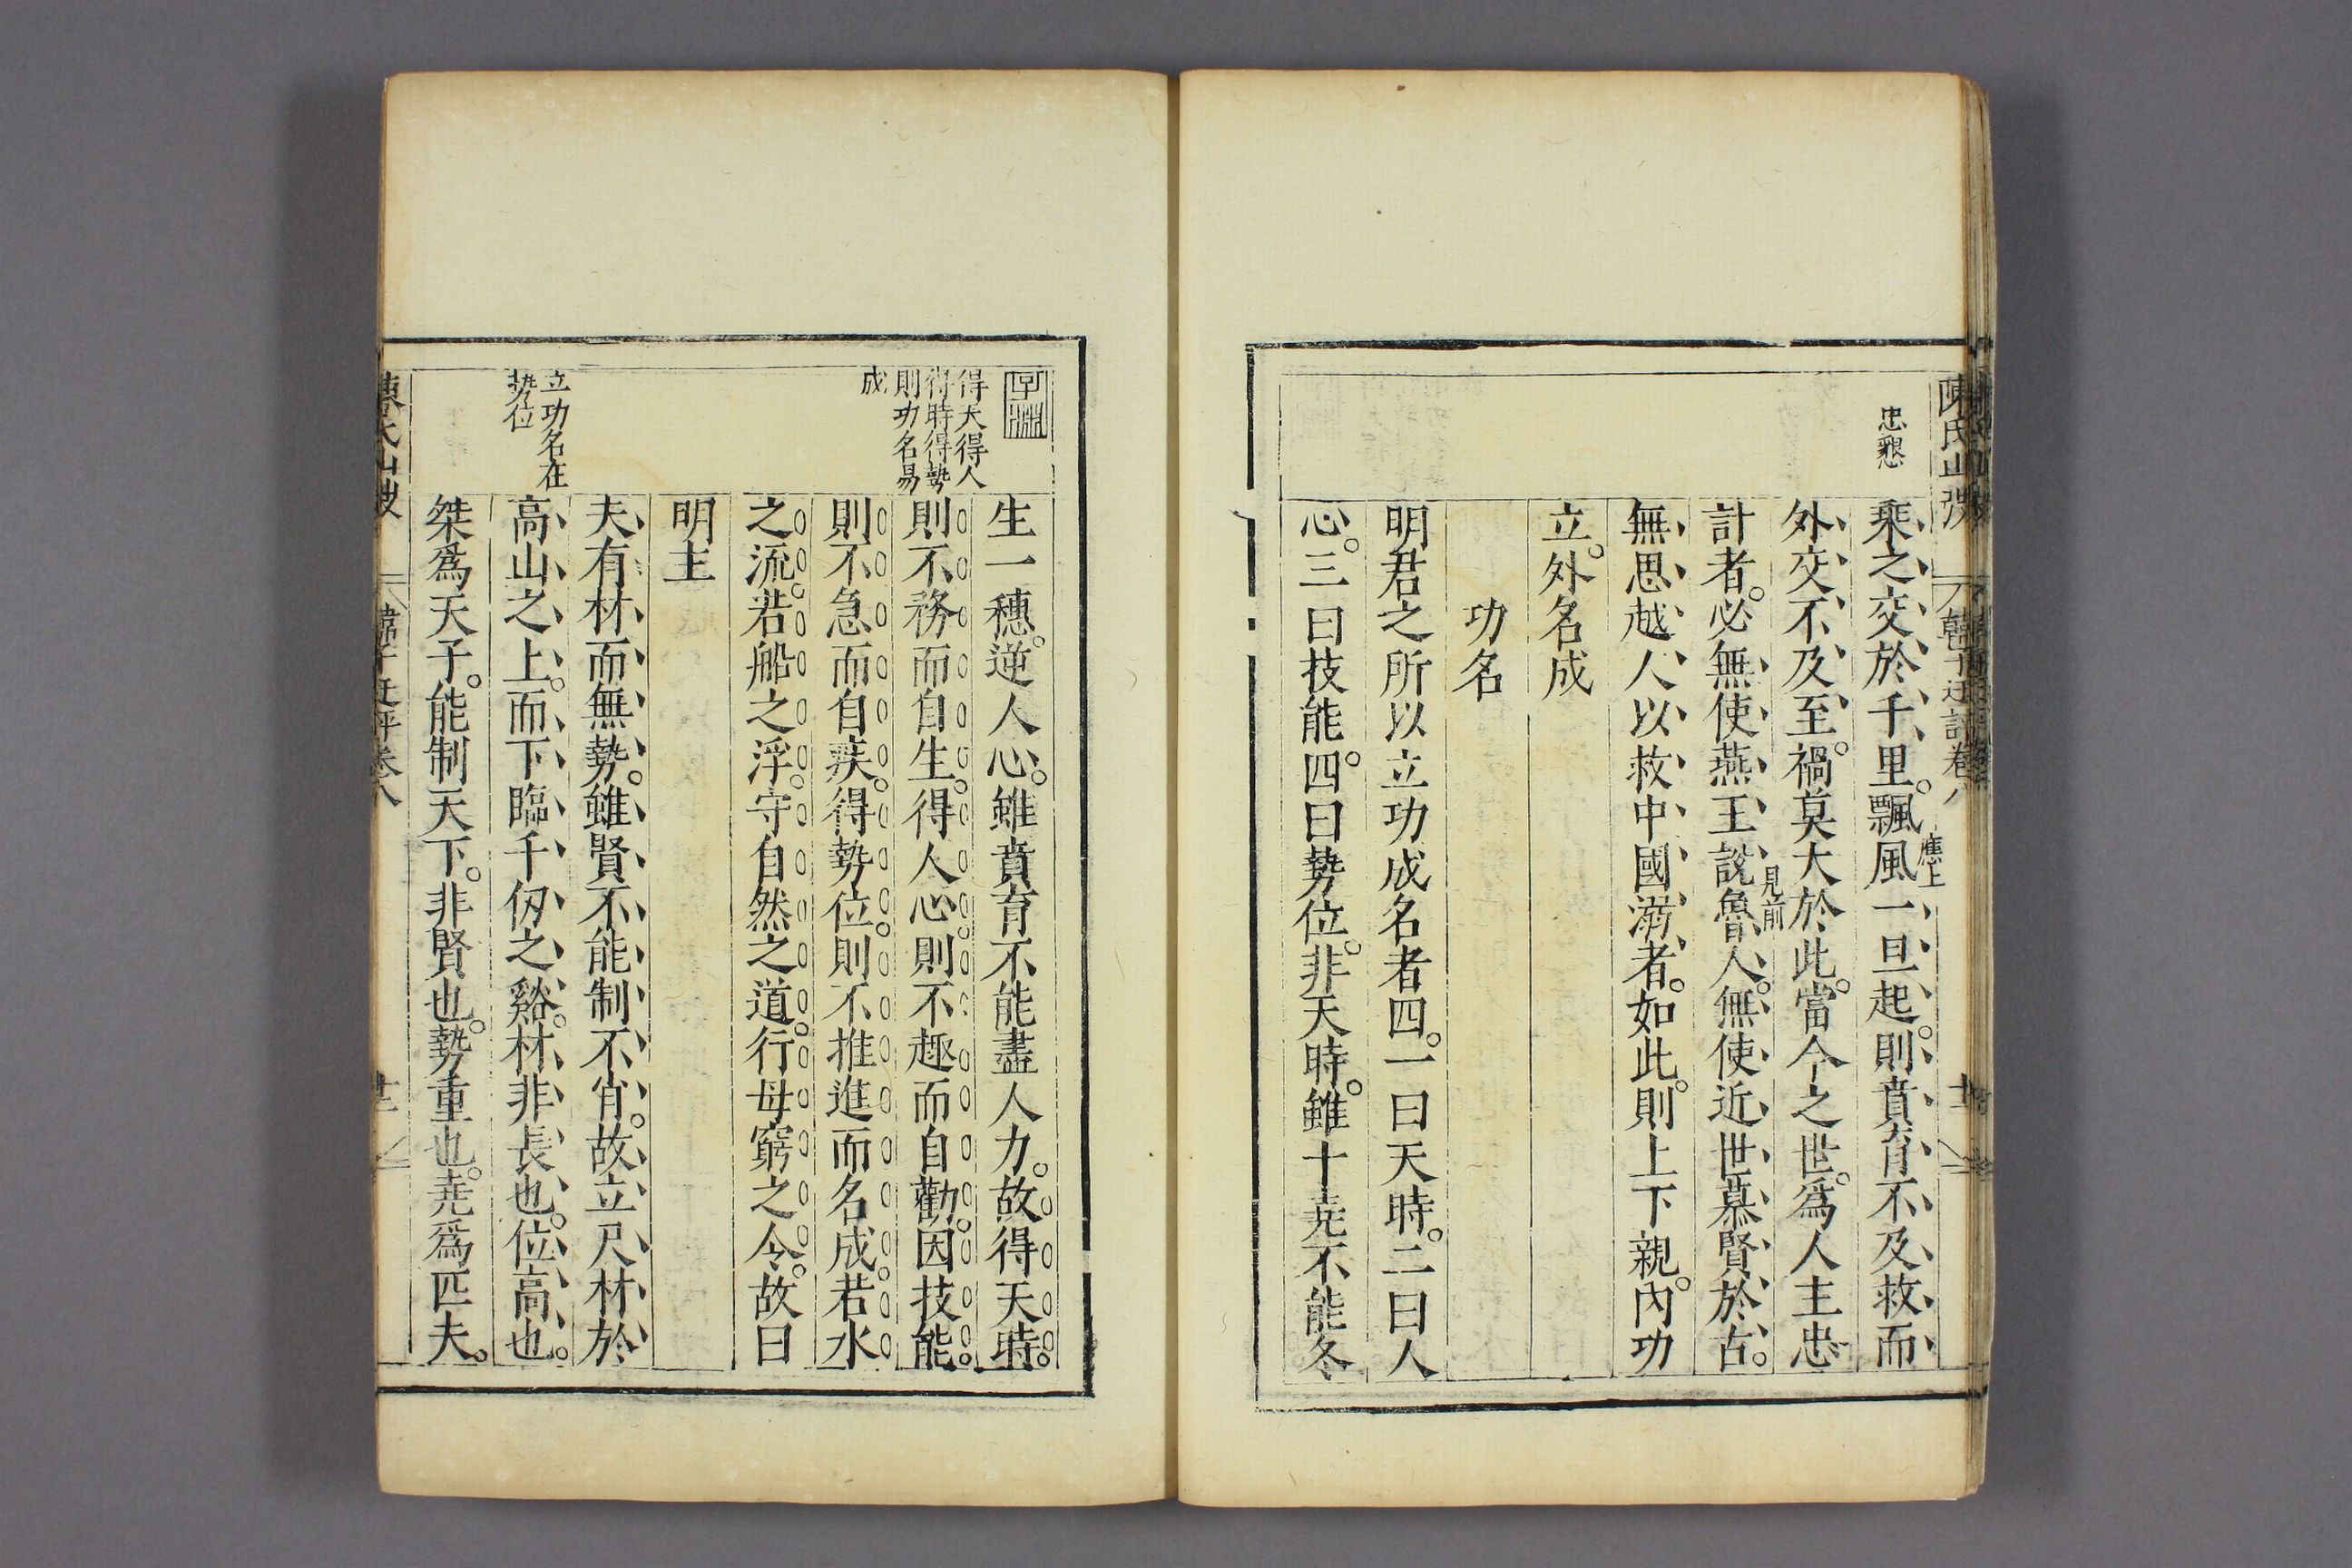 陳氏山
韓子迂評卷八
十二
忠懇
乗之交於千里。飄風一旦起。則賁育不及救而
應上
外交不及至。禍莫大於此。當今之世。爲人主忠
計者。必無使燕王說魯人。無使近世慕賢於古。
見前
無思越人以救中國溺者。如此。則上下親。內功
立。外名成
功名
明君之所以立功成名者四。一曰天時。二曰人
心。三曰技能。四曰勢位。非天時。雖十堯不能冬
得天得人
得時得勢
則功名易
成
生一穗。逆人心。雖賁育不能盡人力。故得天時。
則不務而自生。得人心。則不趣而自勸。因技能。
則不急而自疾。得勢位。則不推進而名成。若水
之流。若船之浮。守自然之道。行毋窮之令。故曰
明主
立功名在
勢位
夫有材而無勢。雖賢不能制不肖。故立尺材於
高山之上。而下臨千仞之谿。材非長也。位高也。
桀爲天子。能制天下。非賢也。勢重也。堯爲匹夫。
陳氏山
韓子迂評卷八